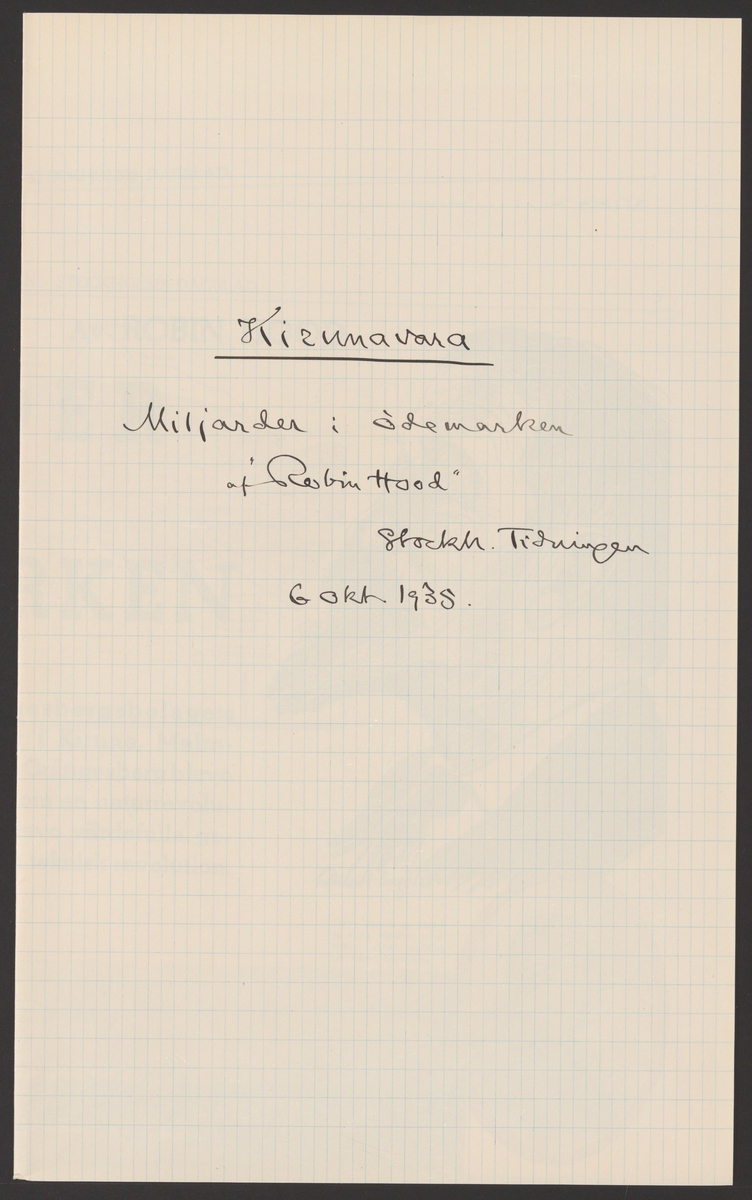 Kirunavara
Miljarder i ödemarken
af "Robin Hood"
Stockh. Tidningen
6 okt 1935.